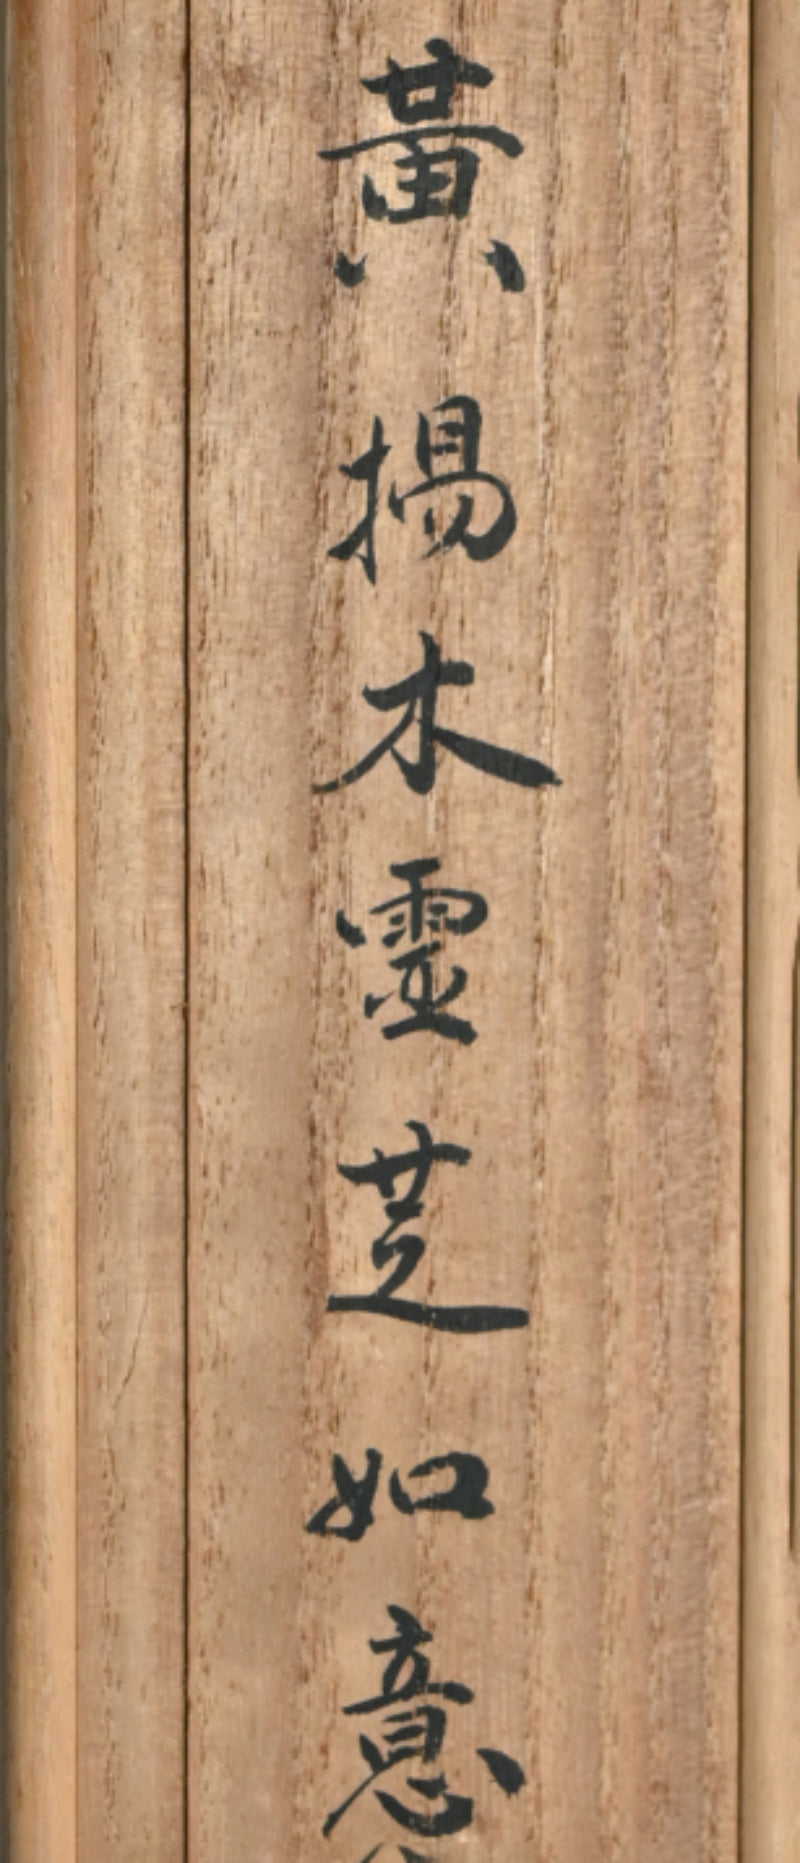 黃揚木靈芝如意